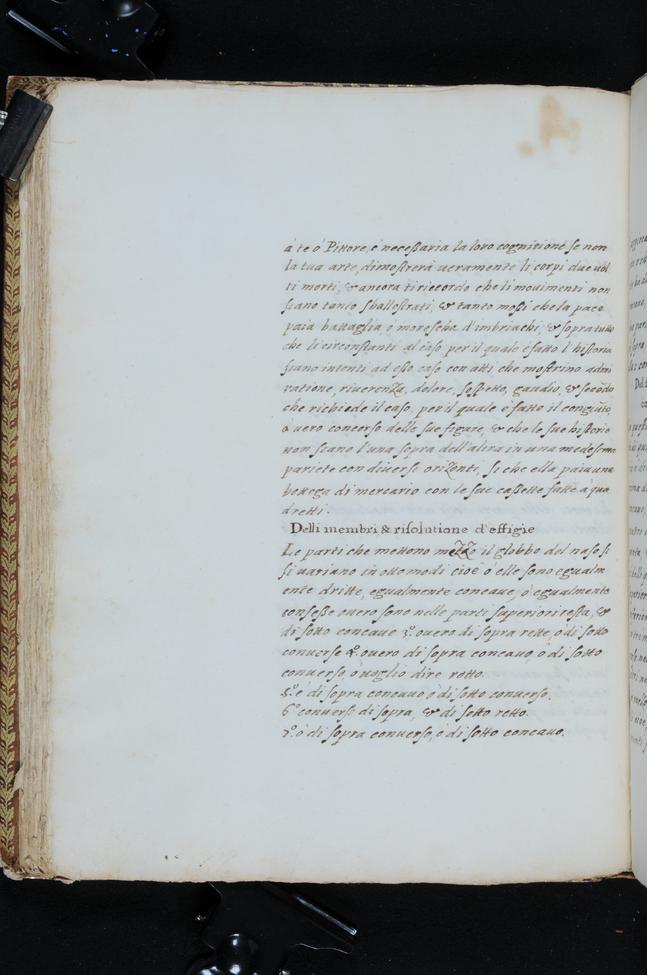 à te ò Pittore, è necessaria la loro cognitione se non
la tua arte, dimostrerà veramente li corpi due vol
ti morti, & ancora ti ricordo che li mouimenti non
siano tanto sballestrati, & tanto mossi che la pace
paia battaglia ò morescha d'imbriachi, & sopra tutto
che li circonstanti al caso per il quale è fatto l'historia
siano intenti ad esso caso con atti che mostrino admi
ratione, riuerenza, dolore, sospetto, gaudio, & secōdo
che richiede il caso, per il quale è fatto il congiūto,
ò vero concorso delle sue figure, & che le sue historie
non siano l'una sopra dell'altra in una medesima
pariete con diuersi orizonti, si che ella paia una
bottega di merciario con le sue cassette fatte à qua
dretti.
Delli membri & risolutione d'effigie
Le parti che mettono mezze il globbo del naso si
si uariano in otto modi cioè ò elle sono egualm
ente dritte, egualmente concaue, ò egualmente
conuesse ouero sono nelle parti superiori resta, &
di sotto concaue 3.º ouero di sopra rette, ò di sotto
conuerse 4.º ouero di sopra concauo, ò di sotto
conuerso, ò uoglio dire rotto.
5.º è di sopra concauo, ò di sotto conuerso.
6.º conuerso di sopra, & di sotto retto.
7.º ò di sopra conuerso, ò di sotto concauo.